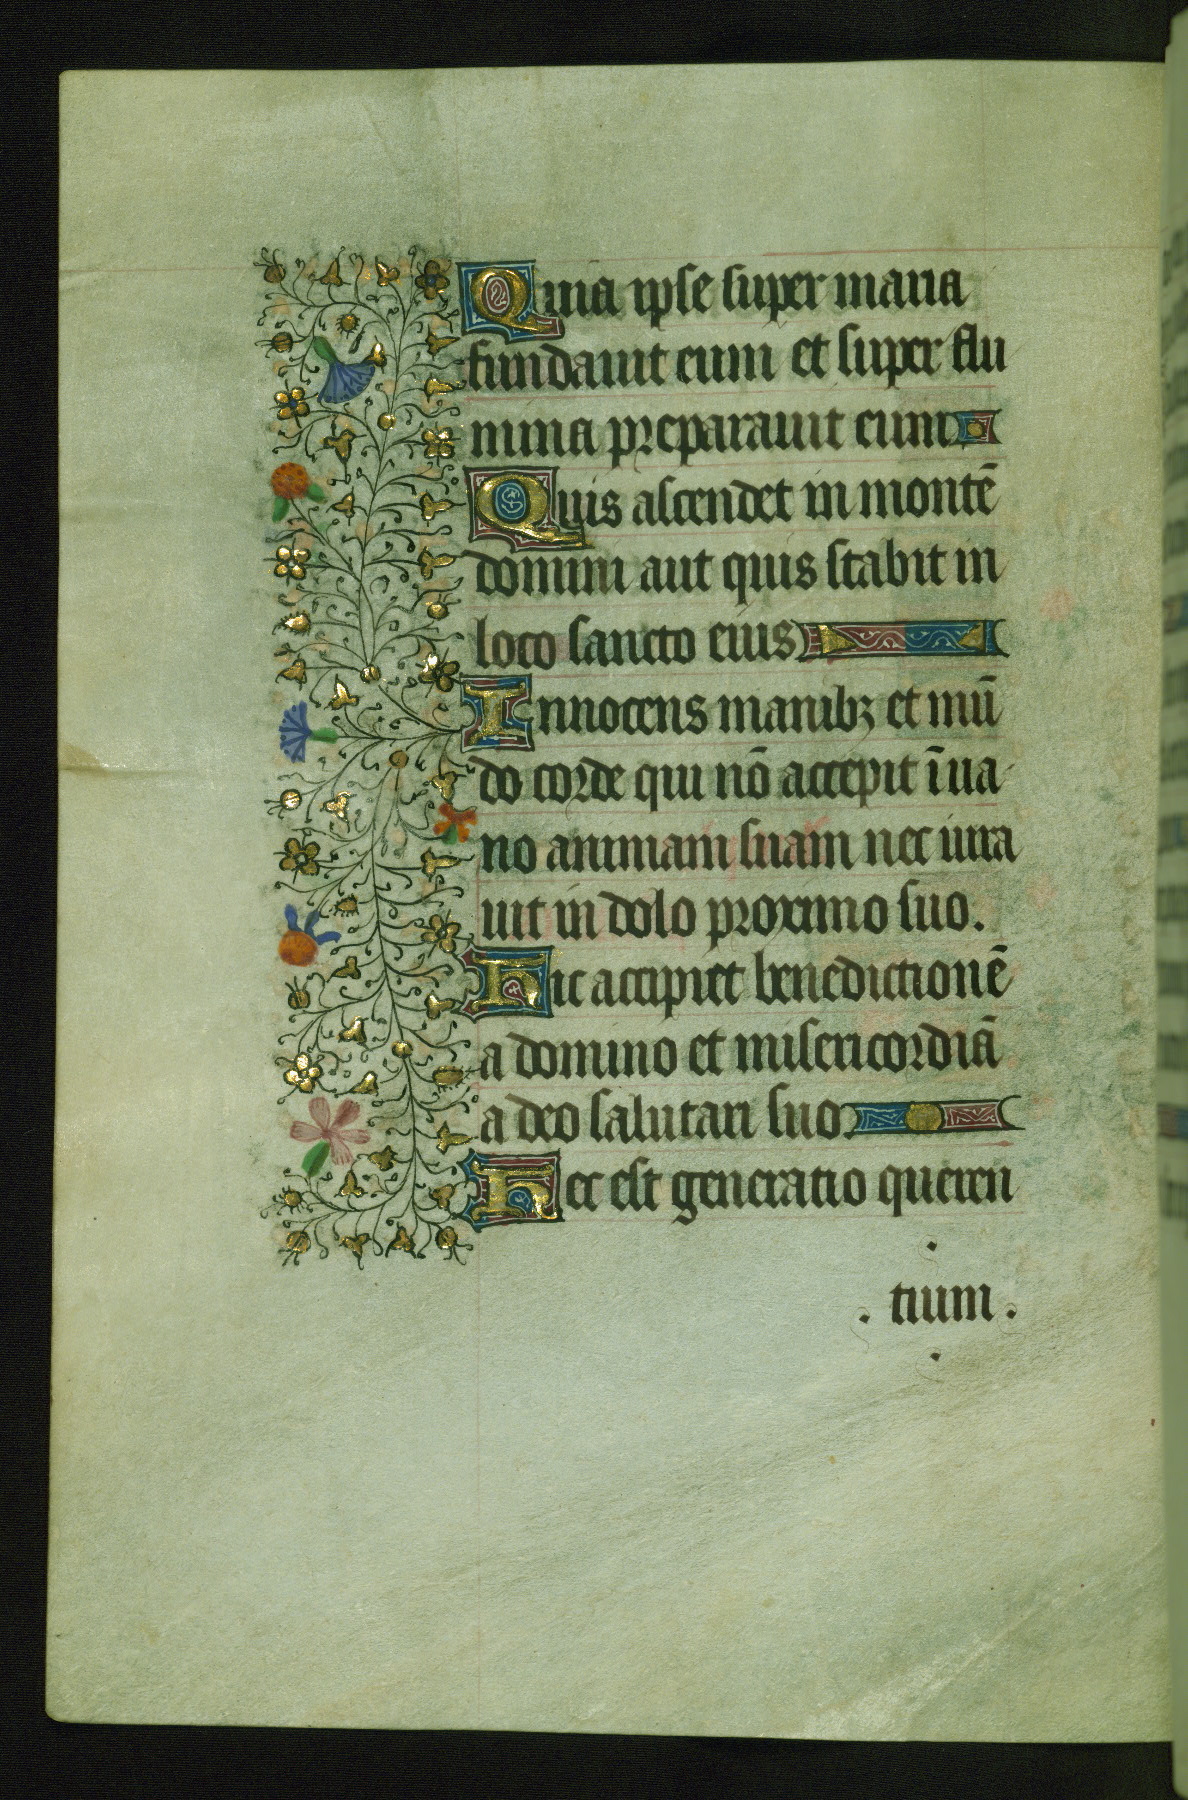 Quia ipse super maria
fundauit eum et super flu
mina preparauit eum
Quis ascendet in montē
domini aut quis stabit in
loco sancto eius
Innocens manibꝫ et mū
do corde qui nō accepit ī ua
no animam suam nec iura
uit in dolo proximo suo.
Hic accipiet benedictionē
a domino et misericordiā
a deo salutari suo
Hec est generatio queren
. tium .